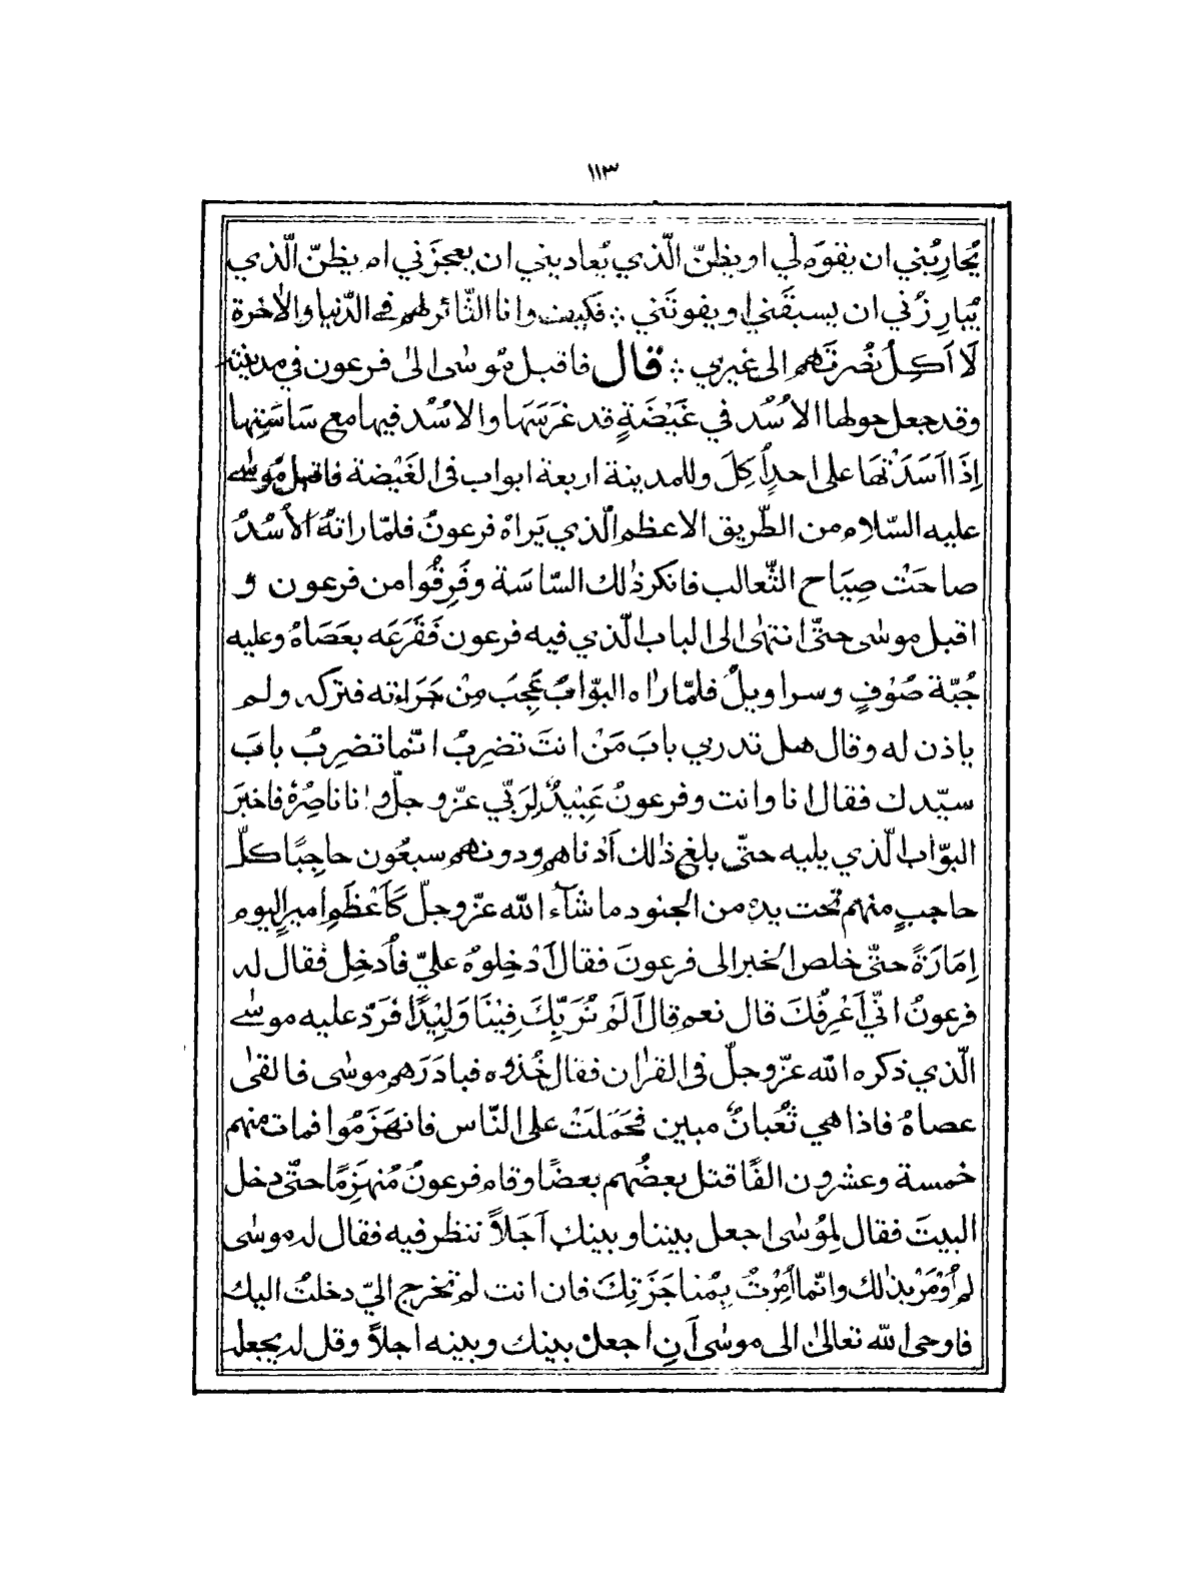 ١١٣
يُحَارِبُني ان يقوَم لي او يظنّ الّذي يُعاديني ان يعجزَني ام يظنّ الّذي
يُبارِزُني ان يسبقَني او يفوتَني ∴ فكيف وانا الثّائر لهم في الدّنيا والاٰخرة
لَا اَكِلُ نُصْرتَهم الى غيري ∴ قال فاقبل مُوسٰى الىٰ فرعون في مدينته
وقد جعل حولها الاُسُد في غَيْضَةٍ قد غَرَسَهَا والاسُدُ فيها مع سَاسَتِها
اِذَا اَسَدَتْهَا على احدٍ اُكِلَ وللمدينة اربعة ابواب فى الغَيْضة فاقبل مُوسٰى
عليه السّلام من الطّريق الاعظم الّذي يَراهُ فرعونُ فلمّا راتهُ الاُسُدُ
صاحَتْ صِيَاح الثّعالب فانكر ذٰلك السّاسَة وفَرِقُوا من فرعون و
اقبل موسٰى حتّى انتهٰى الى الباب الّذي فيه فرعون فَقَرَعَه بعَصَاهُ وعليه
جُبّة صُوْفٍ وسراويلُ فلمّا راٰه البوّابُ عَجِبَ مِنْ جَرَاءته فتركه ولم
ياذن له وقال هل تدري بابَ مَنْ انتَ تضرِبُ انّما تضرِبُ بابَ
سيّدك فقال انا وانت وفرعونُ عَبِيْدٌ لِرَبّي عزّ وجلّ وانا ناصِرُهُ فاخبَرَ
البوّاب الّذي يليه حتّى بلغ ذٰلك اَدْناهم ودونهم سبعُون حاجِبًا كلّ
حاجبٍ منهم تحت يده من الجنود ما شآء الله عزّ وجلّ كَاَعْظَمِ اميرٍ اليوم
اِمَارَةً حتّى خلص الخبر الى فرعونَ فقال اَدْخِلوهُ عليّ فاُدخِلَ فقال له
فرعونُ انّي اَعْرِفُكَ قال نعم قال اَلَمْ نُرَبِّكَ فِيْنَا وَلِيْدًا فَرَدّ عليه موسٰى
الّذي ذكره الله عزّ وجلّ فى القرٰان فقال خُذوه فبادَرَهم موسٰى فالقىٰ
عصاهُ فاذا هي ثُعْبانٌ مبين فحَمَلَتْ على النّاس فانهَزَمُوا فمات منهم
خمسة وعشرون الفًا قتل بعضُهم بعضًا وقام فرعونُ مُنهَزِمًا حتّى دخل
البيتَ فقال لِمُوسٰى اجعل بيننا وبينك اَجَلاً ننظر فيه فقال له موسٰى
لم اُوْمَرْ بذٰلك وانّما اُمِرْتُ بِمُناجَزَتِكَ فان انت لم تخرج اليّ دخلتُ اليك
فاوحى الله تعالىٰ الى موسٰى اَنِ اجعلْ بينك وبينه اجلاً وقل له يجعله